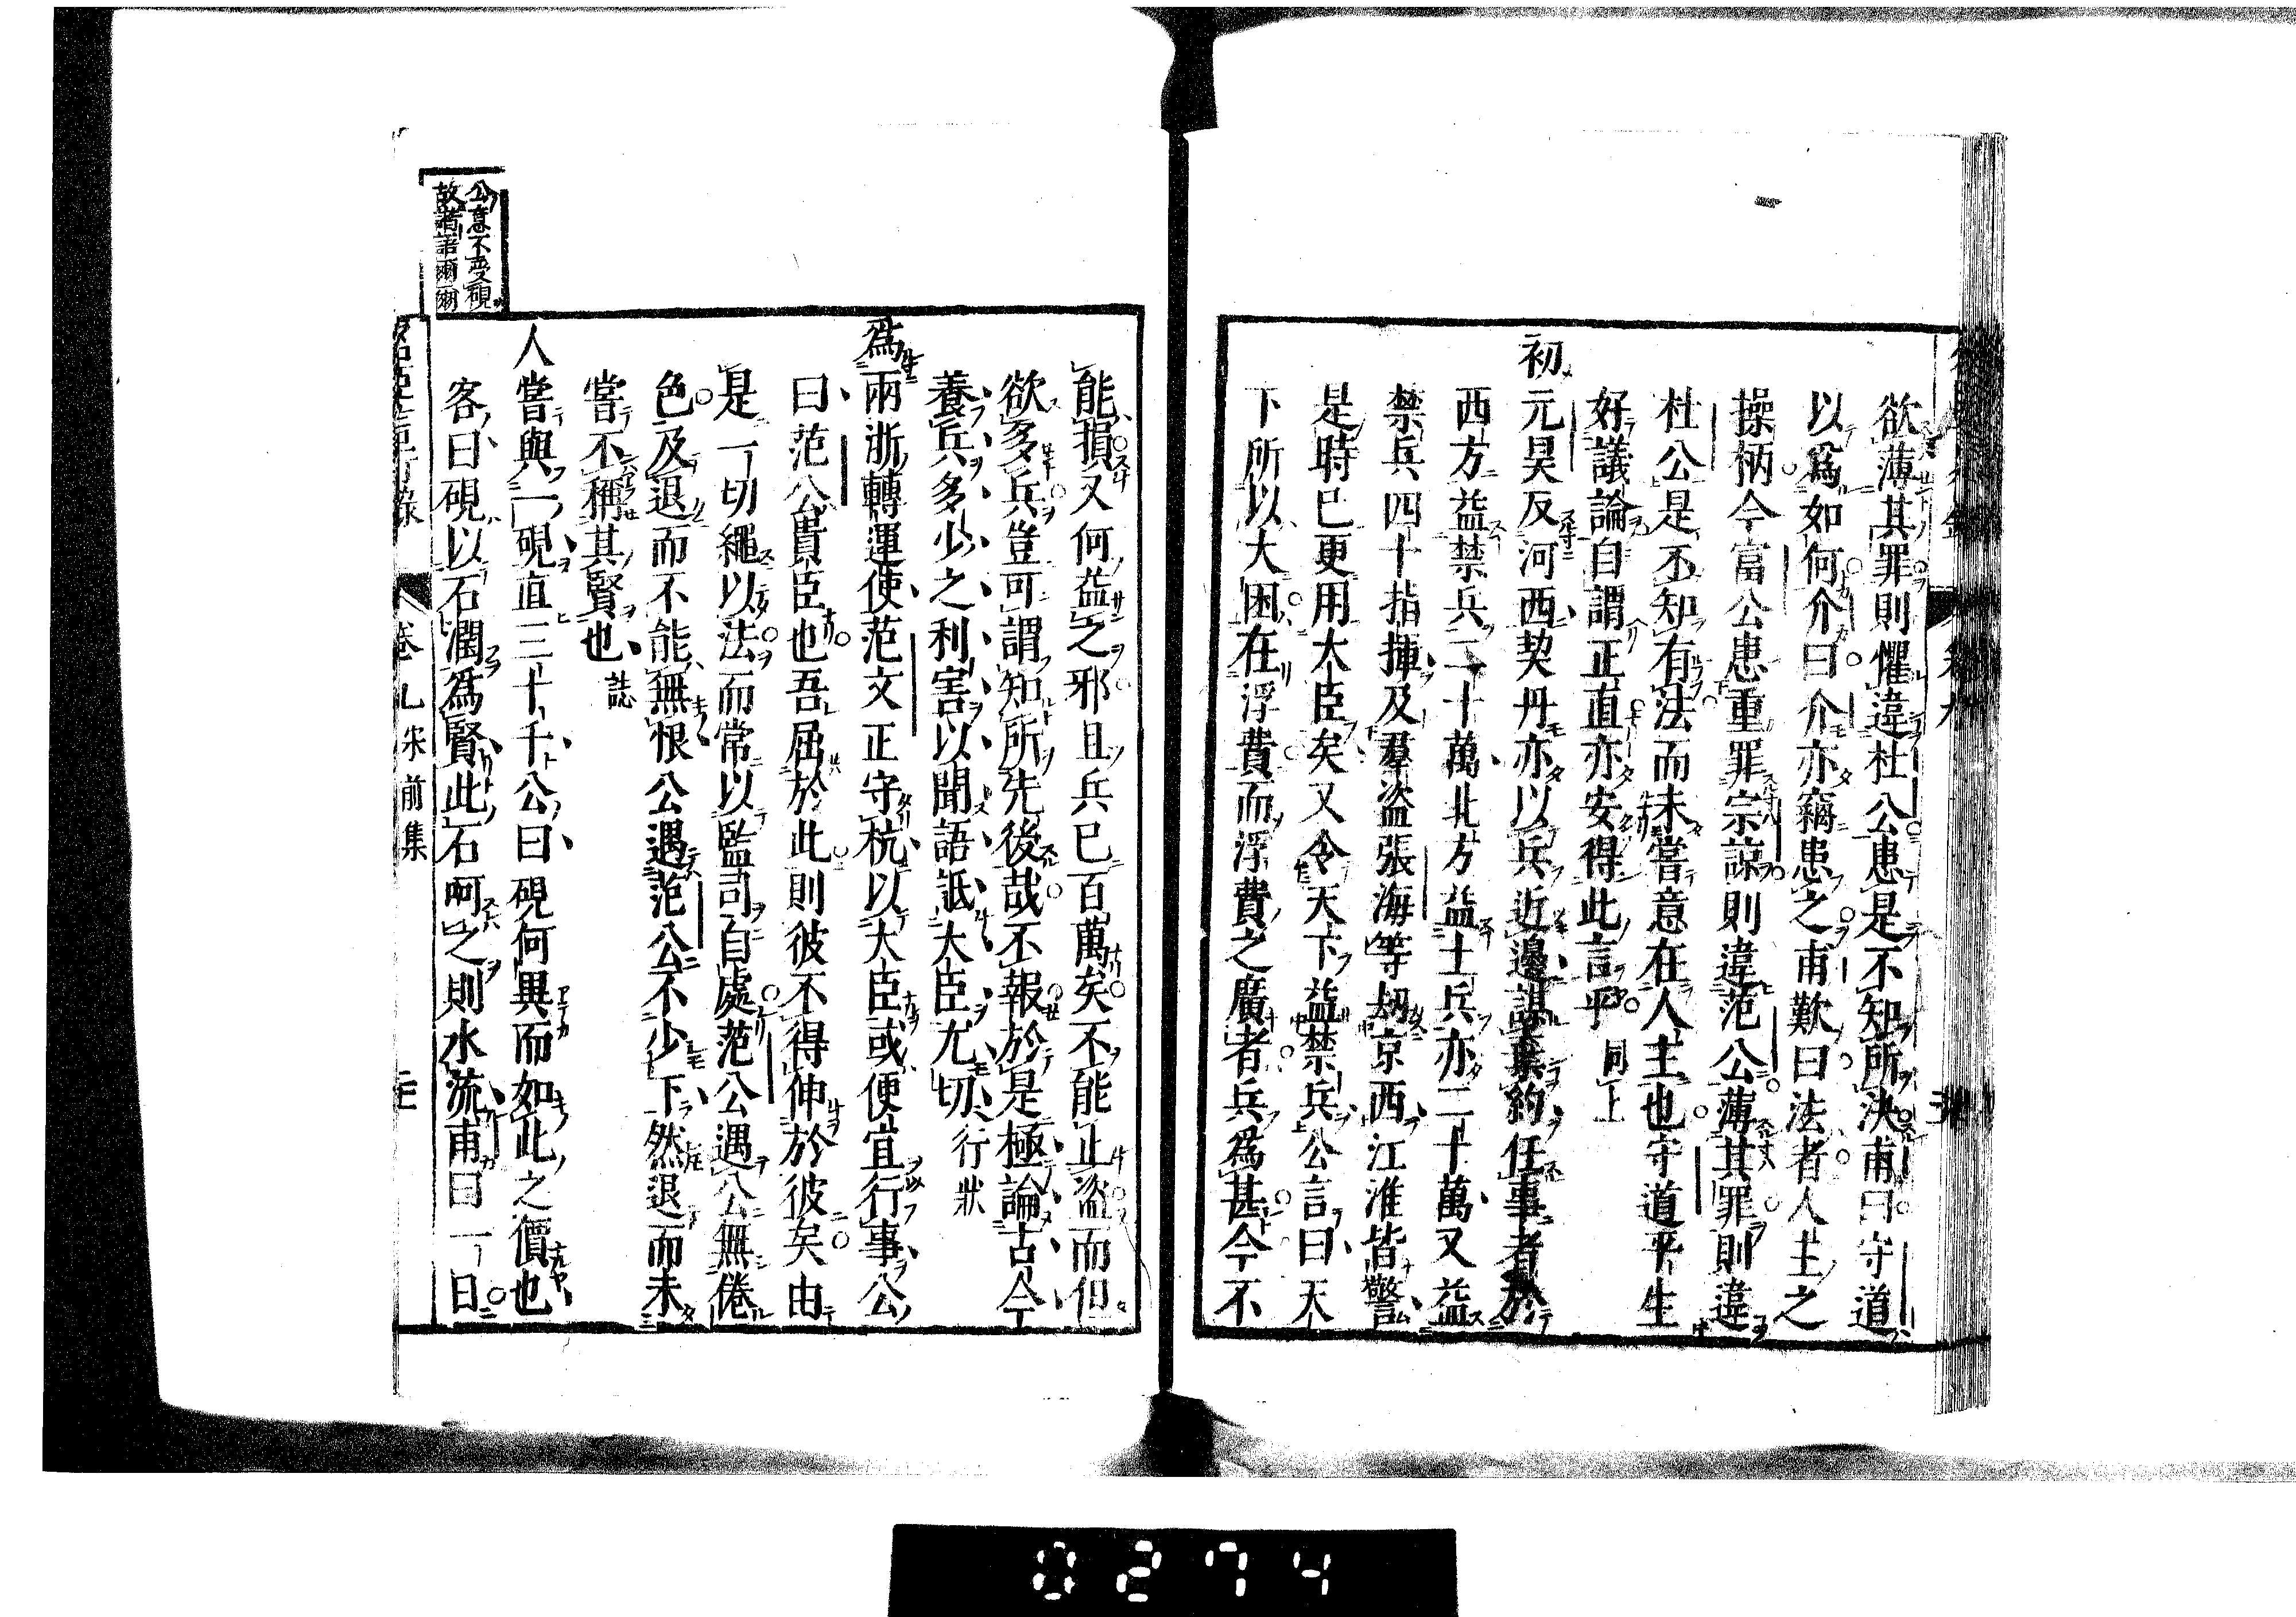 欲薄其罪則懼違杜公患是不知所決甫曰守道
以爲如何介曰介亦竊患之甫歎曰法者人主之
操柄今富公患重罪宗諒則違范公薄其罪則違
杜公是不知有法而未嘗意在人主也守道平生
好議論自謂正直亦安得此言乎 同上
初元昊反河西契丹亦以兵近邊謀棄約任事者於
西方益禁兵二十萬北方益土兵亦二十萬又益
禁兵四十指揮及羣盜張海等刼京西江淮皆警
是時已更用大臣矣又令天下益禁兵公言曰天
下所以大困在浮費而浮費之廣者兵爲甚今不
能損又何益之邪且兵已百萬矣不能止盜而但
欲多兵豈可謂知所先後哉不報於是極論古今
養兵多少之利害以聞語詆大臣尤切 行狀
爲兩浙轉運使范文正守杭以大臣或便宜行事公
曰范公貴臣也吾屈於此則彼不得伸於彼矣由
是一切繩以法而常以監司自處范公遇公無倦
色及退而不能無恨公遇范公不少下然退而未
嘗不稱其賢也 誌
人嘗與一硯直三十千公曰硯何異而如此之價也
客曰硯以石潤爲賢此石呵之則水流甫曰一日
公意不受硯
故諸語爾爾
卷九 宋前集
0274